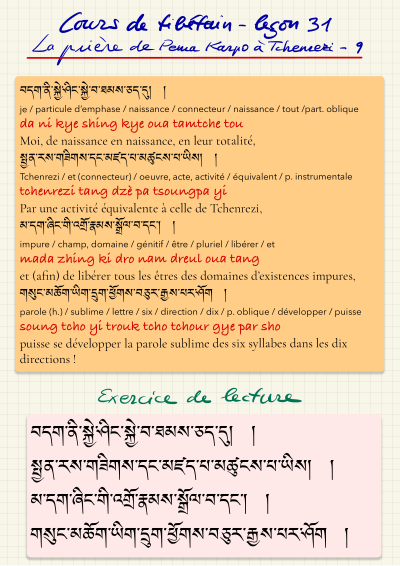 Cours de tibétain - leçon 31
La prière de Pema Karpo à Tchenrezi - 9
བདག་ནི་སྐྱེ་ཤིང་སྐྱེ་བ་ཐམས་ཅད་དུ། །
je / particule d'emphase / naissance / connecteur / naissance / tout /part. oblique
da ni kye shing kye oua tamtche tou
Moi, de naissance en naissance, en leur totalité,
སྤྱན་རས་གཟིགས་དང་མཛད་པ་མཚུངས་པ་ཡིས། །
Tchenrezi / et (connecteur) / oeuvre, acte, activité / équivalent / p. instrumentale
tchenrezi tang dzè pa tsoungpa yi
Par une activité équivalente à celle de Tchenrezi,
མ་དག་ཞིང་གི་འགྲོ་རྣམས་སྒྲོལ་བ་དང་། །
impure / champ, domaine / génitif / être / pluriel / libérer / et
mada zhing ki dro nam dreul oua tang
et (afin) de libérer tous les êtres des domaines d'existences impures,
གསུང་མཆོག་ཡིག་དྲུག་ཕྱོགས་བཅུར་རྒྱས་པར་ཤོག །
parole (h.) / sublime / lettre / six / direction / dix / p. oblique / développer / puisse
soung tcho yi trouk tcho tchour gye par sho
puisse se développer la parole sublime des six syllabes dans les dix
directions !
Exercice de lecture
བདག་ནི་སྐྱེ་ཤིང་སྐྱེ་བ་ཐམས་ཅད་དུ། །
སྤྱན་རས་གཟིགས་དང་མཛད་པ་མཚུངས་པ་ཡིས། །
མ་དག་ཞིང་གི་འགྲོ་རྣམས་སྒྲོལ་བ་དང་། །
གསུང་མཆོག་ཡིག་དྲུག་ཕྱོགས་བཅུར་རྒྱས་པར་ཤོག །